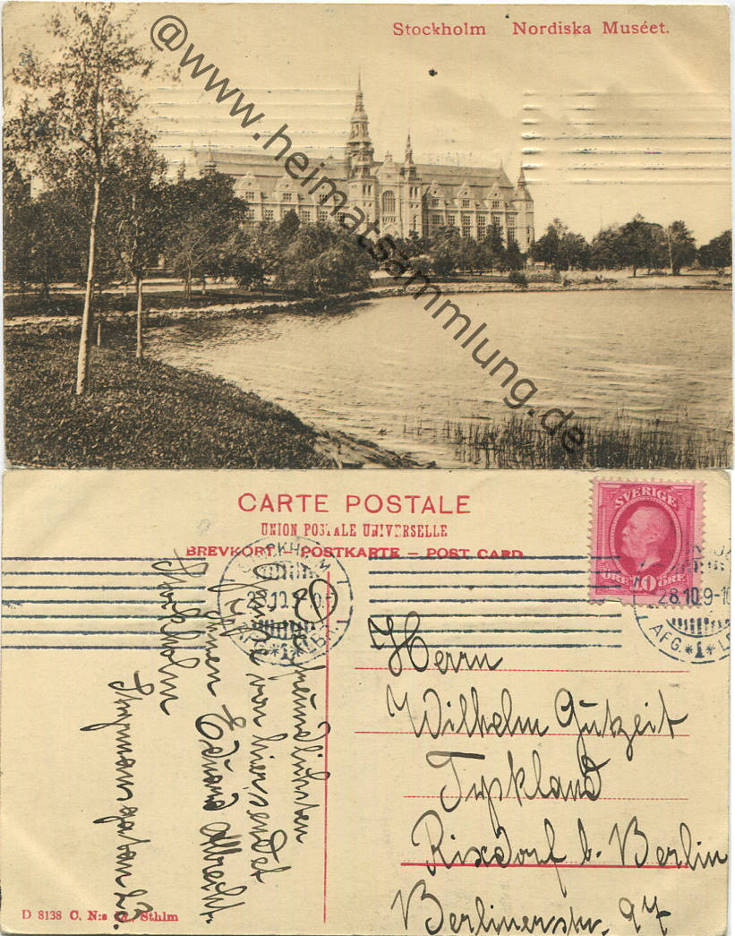 Stockholm Nordiska Muséet.
@www.heimatsammlung.de
CARTE POSTALE
UNION POSTALE UNIVERSELLE
BREVKORT. – POSTKARTE – POST CARD.
SVERIGE
10
ÖRE ÖRE
STOCKHOLM
28.10.9
AFG.*1*LBR
28.10.9-10
AFG.*1*
Herrn
Wilhelm Gutzeit
Tyskland
Rixdorf b. Berlin
Berlinerstr. 97
freundlichsten
Grüsse von hier sendet
Ihnen Eduard Albrecht.
Stockholm
D 8138 C. N:s Sthlm